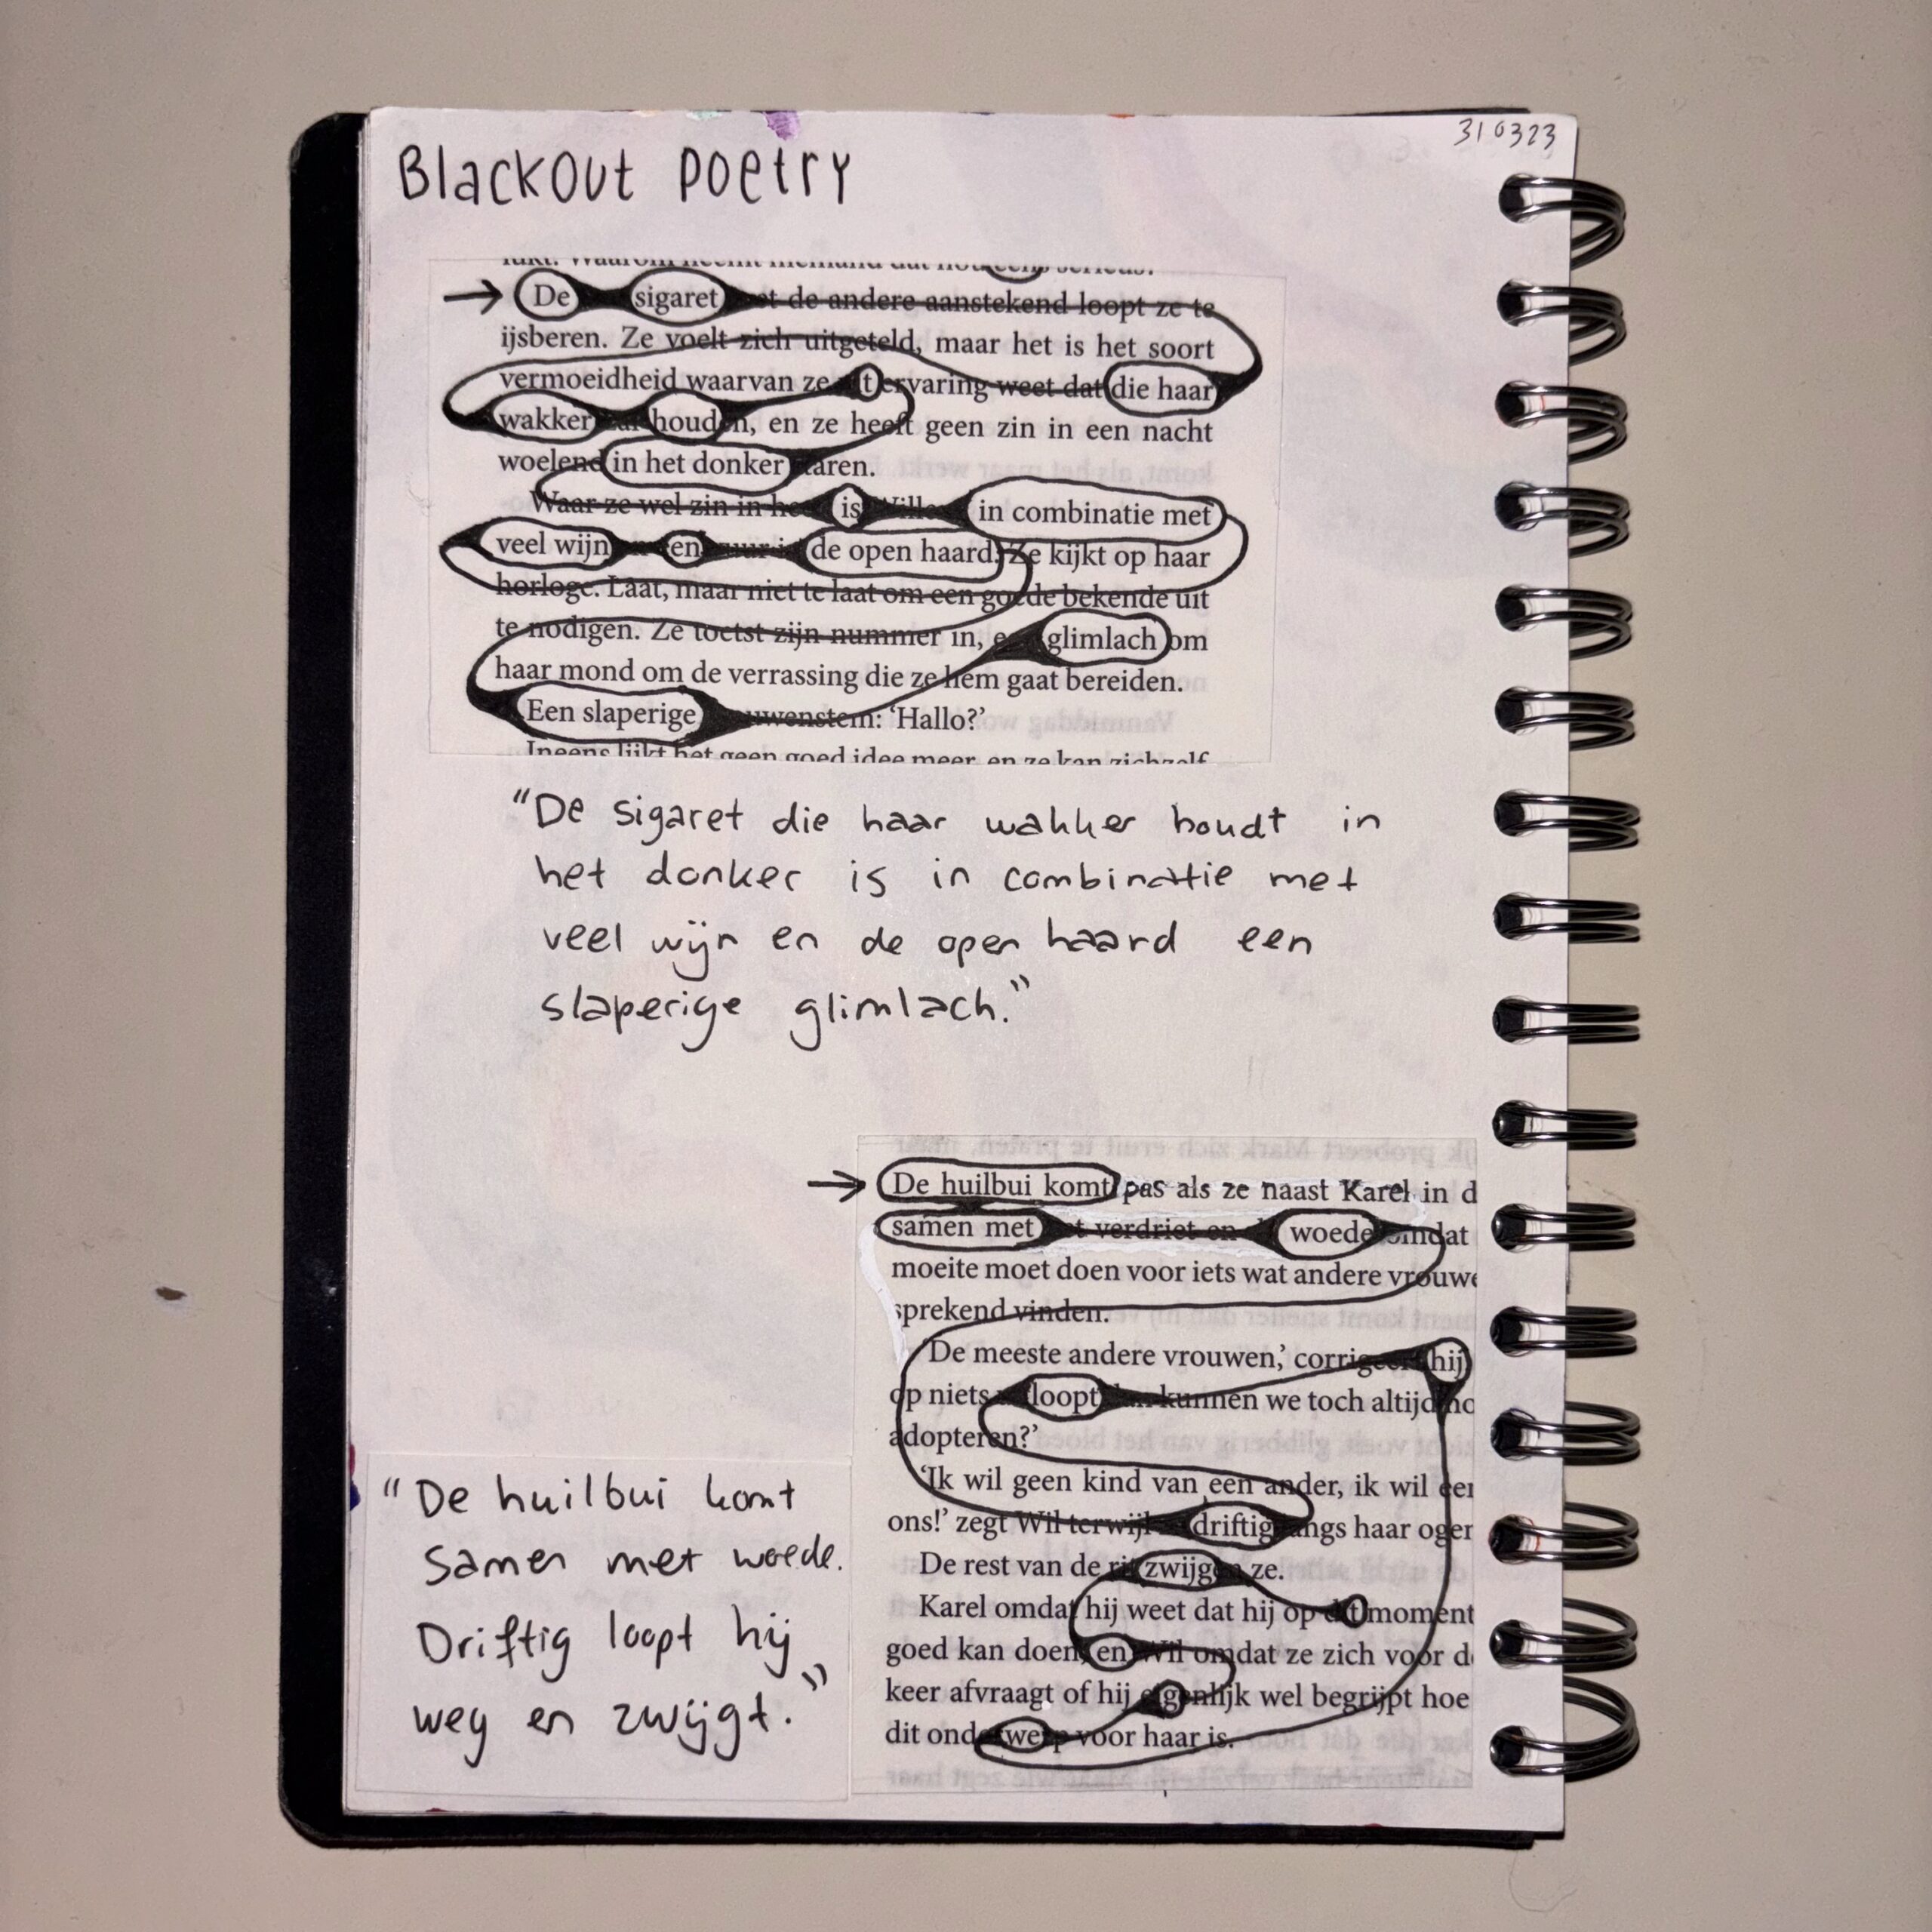 310323
Blackout poetry
De sigaret de andere aanstekend loopt ze te
ijsberen. Ze voelt zich uitgeteld, maar het is het soort
vermoeidheid waarvan ze ervaring weet dat die haar
wakker houden, en ze heeft geen zin in een nacht
woelend in het donker
Waar ze wel zin in is in combinatie met
veel wijn en de open haard. Ze kijkt op haar
horloge. Laat, maar niet te laat om een goede bekende uit
te nodigen. Ze toetst zijn nummer in, glimlach om
haar mond om de verrassing die ze hem gaat bereiden.
Een slaperige : ‘Hallo?’
Ineens lijkt het geen goed idee meer, en ze kan zichzelf
"De sigaret die haar wakker houdt in
het donker is in combinatie met
veel wijn en de open haard een
slaperige glimlach."
De huilbui komt pas als ze naast Karel in d
samen met verdriet en woede omdat
moeite moet doen voor iets wat andere vrouwe
sprekend vinden.
‘De meeste andere vrouwen,’ corrigeert hij
op niets loopt kunnen we toch altijd no
adopteren?’
‘Ik wil geen kind van een ander, ik wil eer
ons!’ zegt Wil terwijl driftig langs haar oger
De rest van de rit zwijgen ze.
Karel omdat hij weet dat hij op dit moment
goed kan doen, en Wil omdat ze zich voor d
keer afvraagt of hij eigenlijk wel begrijpt hoe
dit onderwerp voor haar is.
"De huilbui komt
samen met woede.
Driftig loopt hij
weg en zwijgt."